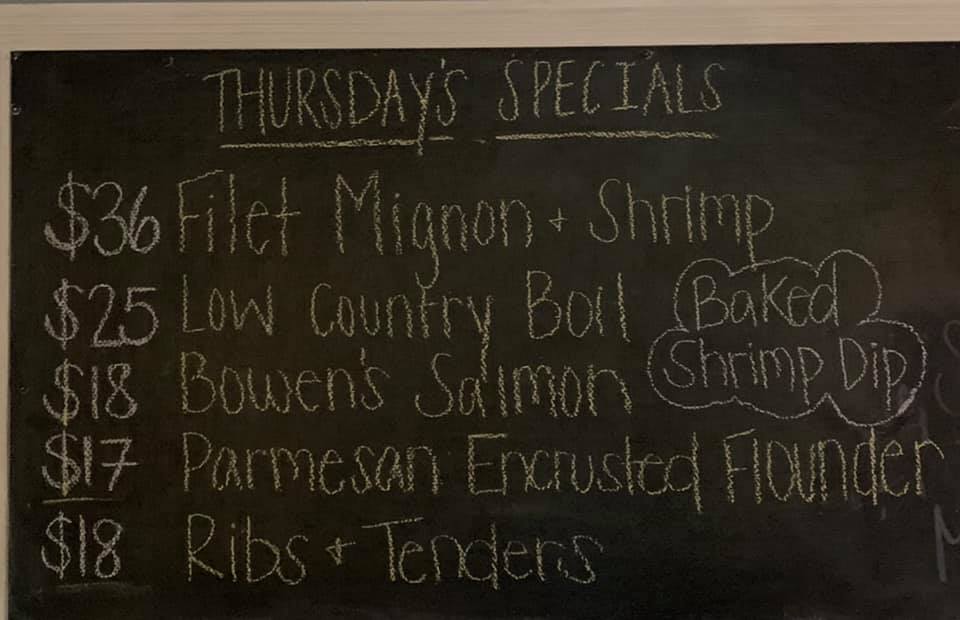 THURSDAY'S SPECIALS
$36 Filet Mignon + Shrimp
$25 Low Country Boil
Baked
Shrimp Dip
$18 Bowen's Salmon
$17 Parmesan Encrusted Flounder
$18 Ribs + Tenders